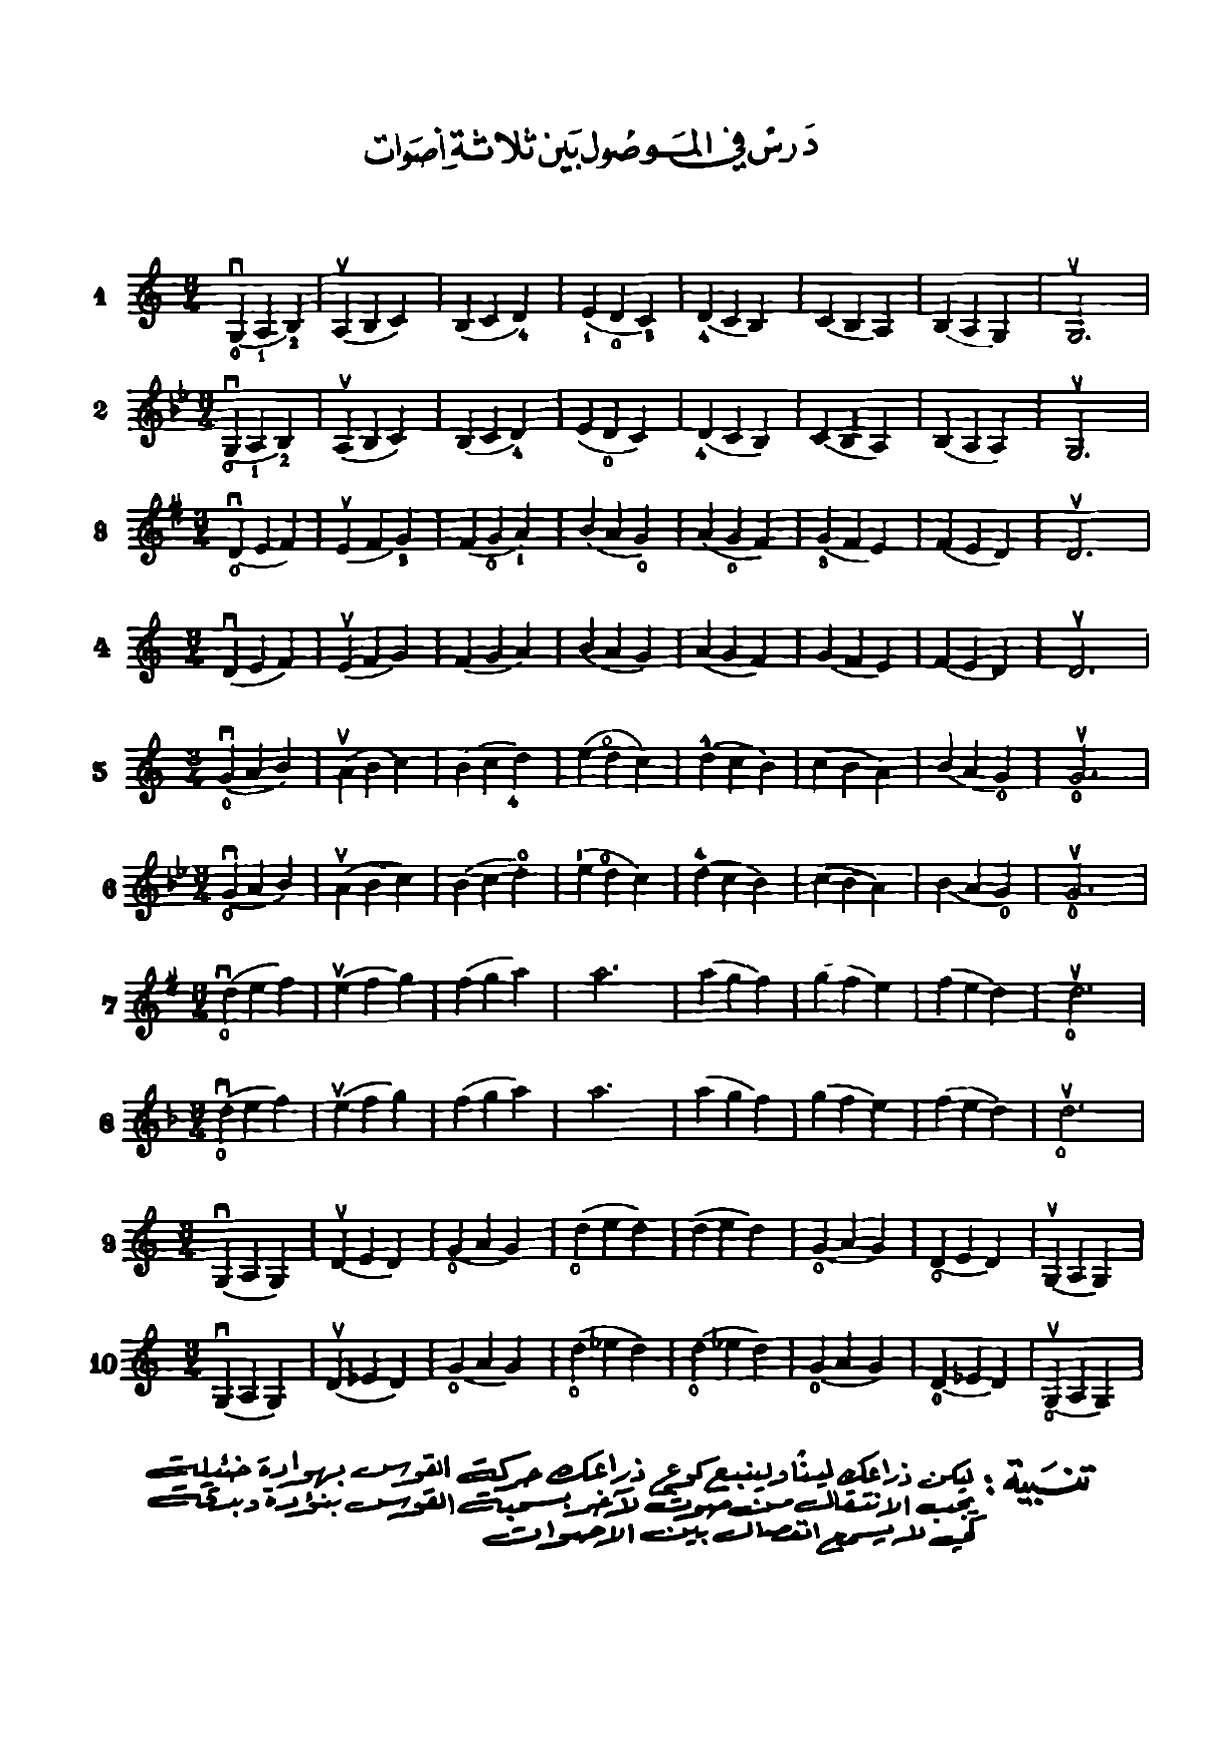 دَرسٌ في المَوصُول بَين ثلاثةِ أصوَات
1
2
3
4
5
6
7
8
9
10
تنبيه : ليكن ذراعك لينًا وليتبع كوع ذراعك حركة القوس بهوادة ضئيلة
يجب الانتقال من صوت لآخر بسحبة القوس بتؤدة وبدقة
كي لا يسمع انفصال بين الاصوات